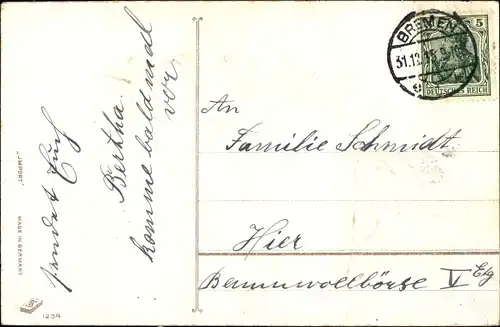 sendet Euch
Bertha
komme bald mal
vor.
BREMEN
31.12.
5
DEUTSCHES REICH
An
Familie Schmidt
Hier
Baumwollbörse V Etg
„IMPORT"
MADE IN GERMANY
1234